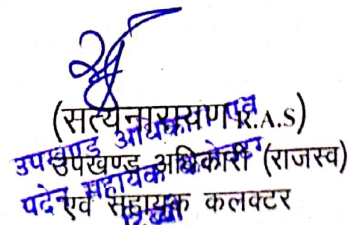 (सत्यनारायण R.A.S)
उपखण्ड अधिकारी (राजस्व)
एवं सहायक कलक्टर
उपखण्ड
पदेन सहायक